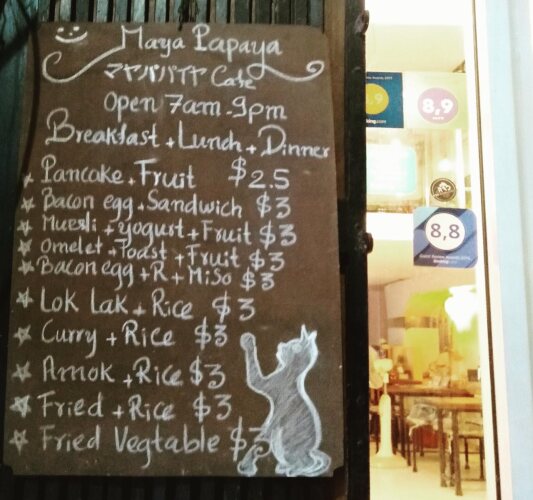 Maya Papaya
マヤパパイヤ Cafe
Open 7am-9pm
Breakfast + Lunch + Dinner
☆ Pancake + Fruit $2.5
☆ Bacon egg + Sandwich $3
☆ Muesli + yogurt + Fruit $3
☆ Omelet + Toast + Fruit $3
☆ Bacon egg + R + Miso $3
☆ Lok Lak + Rice $3
☆ Curry + Rice $3
☆ Amok + Rice $3
☆ Fried + Rice $3
☆ Fried Vegtable $3
8,9
8,8